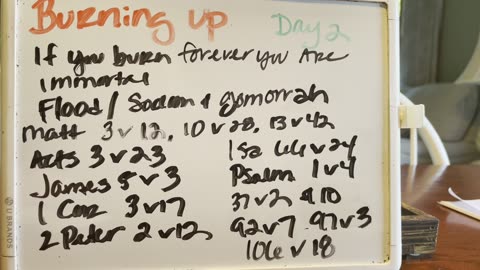 Burning up
Day 2
If you burn forever you Are
immortal
Flood / Sodom & Gomorrah
Matt 3 v 12, 10 v 28, 13 v 42
Acts 3 v 23
James 5 v 3
1 Cor 3 v 17
2 Peter 2 v 12
Isa 66 v 24
Psalm 1 v 4
37 v 2, & 10
92 v 7 97 v 3
106 v 18
U BRANDS